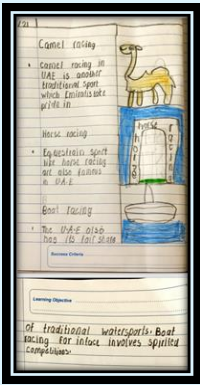 Camel racing
• Camel racing in
UAE is another
traditional sport
which Emiratis take
pride in
Horse racing
• Equestrians sport
like horse racing
are also famous
in U.A.E
horse
racing
Boat racing
• The U.A.E also
has its fair share
Success Criteria
Learning Objective
of traditional watersports. Boat
racing for intace involves spirited
Competitions.